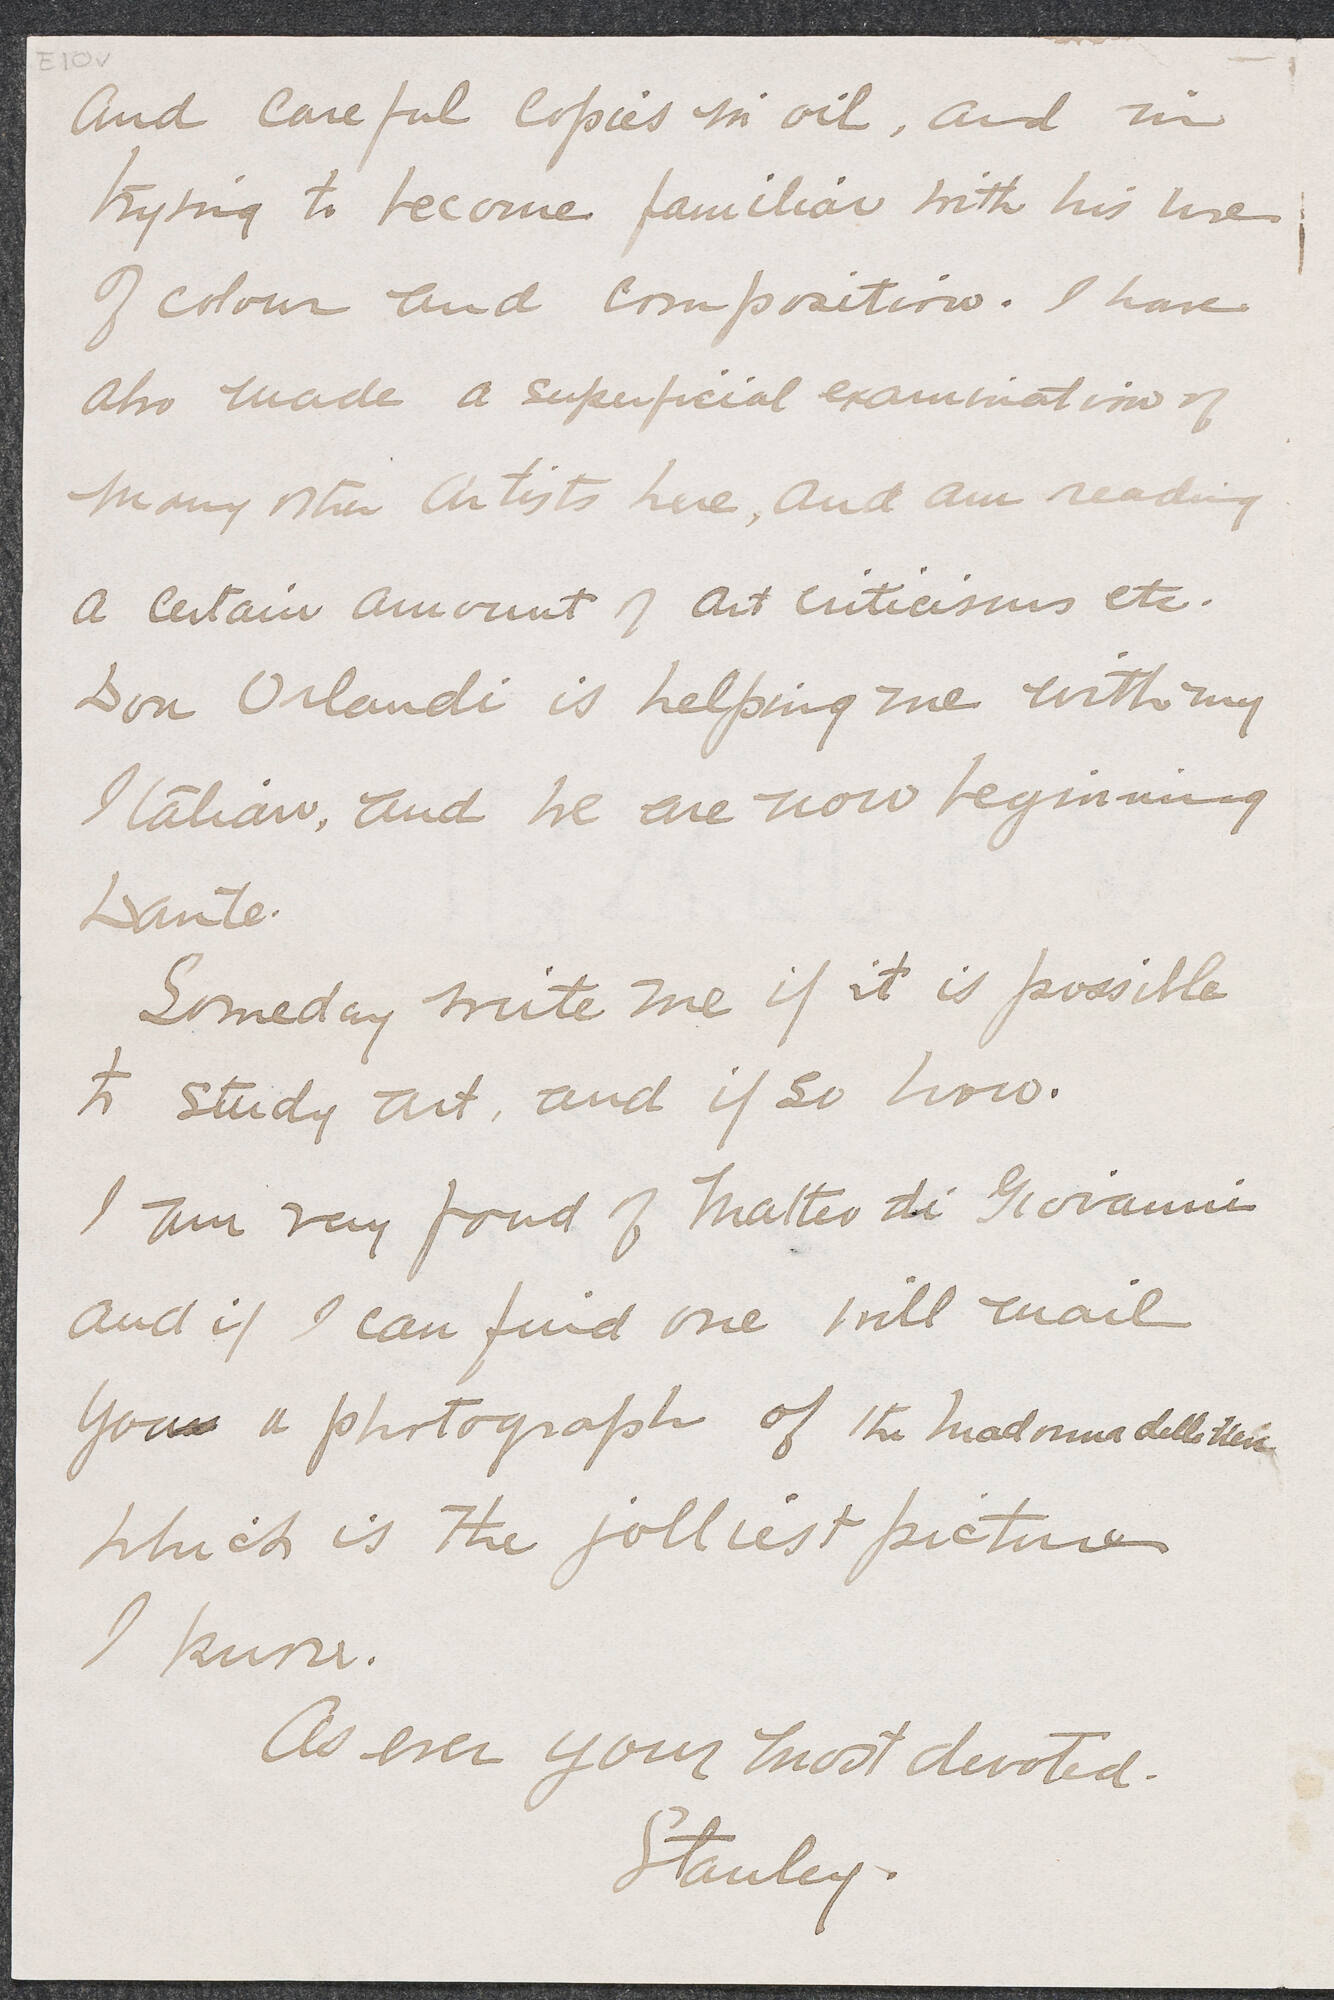 E10v
and careful copies in oil, and in
trying to become familiar with his use
of colour and composition. I have
also made a superficial examination of
many other artists here, and am reading
a certain amount of art criticisms etc.
Don Orlandi is helping me with my
Italian, and we are now beginning
Dante.
Someday write me if it is possible
to study art, and if so how.
I am very fond of Matteo di Giovanni
and if I can find one will mail
you a photograph of the Madonna della Neve
which is the jolliest picture
I know.
As ever your most devoted.
Stanley.